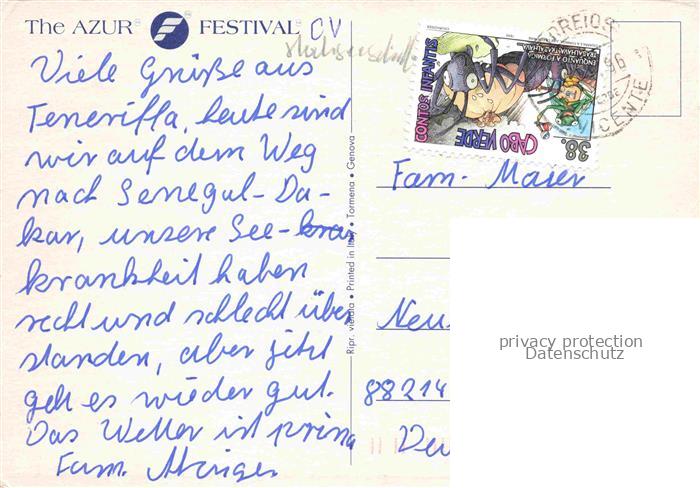 The AZUR FESTIVAL CV
Viele Grüße aus
Teneriffa, heute sind
wir auf dem Weg
nach Senegal-Da-
kar, unsere See-
krankheit haben
recht und schlecht über
standen, aber jetzt
geht es wieder gut.
Das Wetter ist prima
Fam.
Ripr. vietata • Printed in Italy • Tormena • Genova
CONTOS INFANTIS
ENQUANTO A FORMIGA
TRABALHAVA
CABO VERDE
38.
CORREIOS
96
VICENTE
Fam. Maier
Neu
88214
privacy protection
Datenschutz